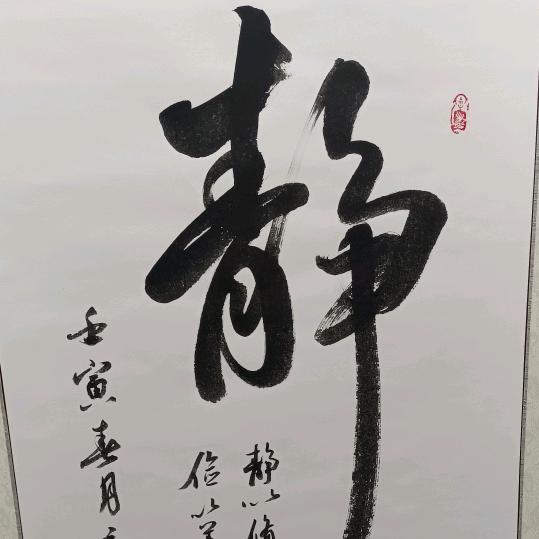 静
静以脩
俭以养
壬寅春月